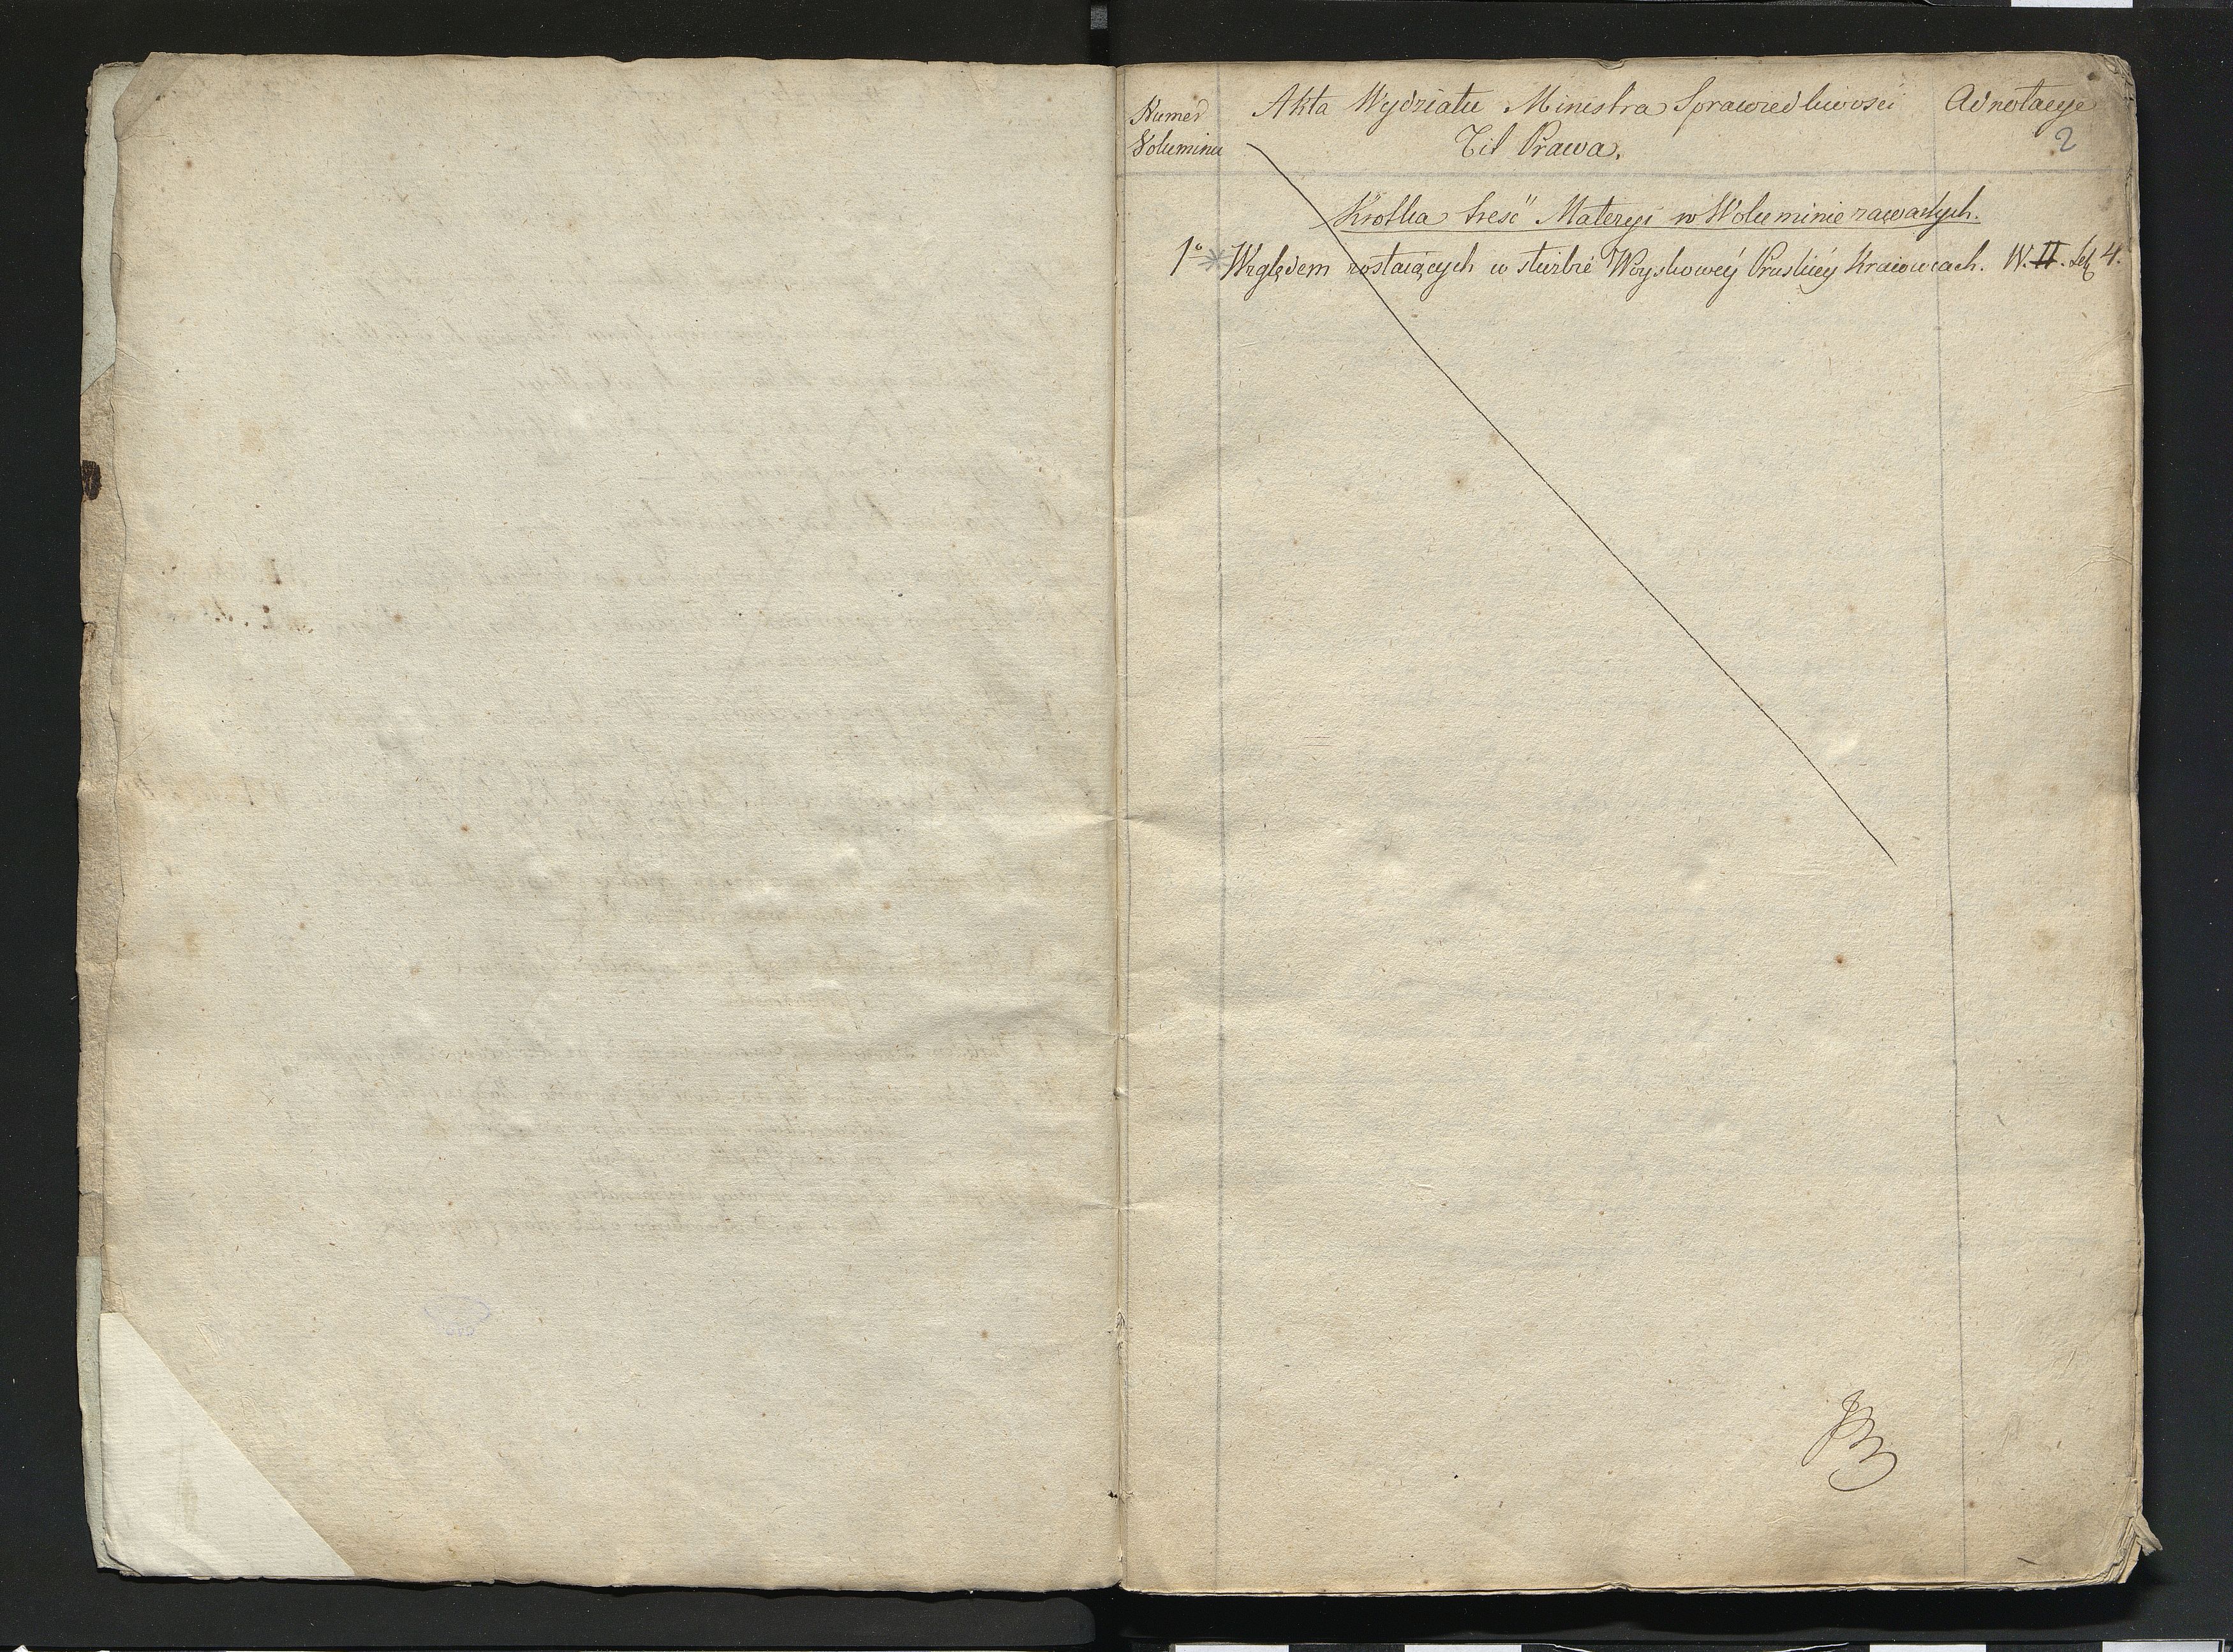 Numer
Voluminu
Akta Wydziału Ministra Sprawiedliwosci
Tit Prawa.
Adnotacye
2
Krotka tresć Materyi w Woluminie zawartych.
1o Względem zostaiących w służbie Woyskowey Pruskiey Kraiowcach. W. II. 4.